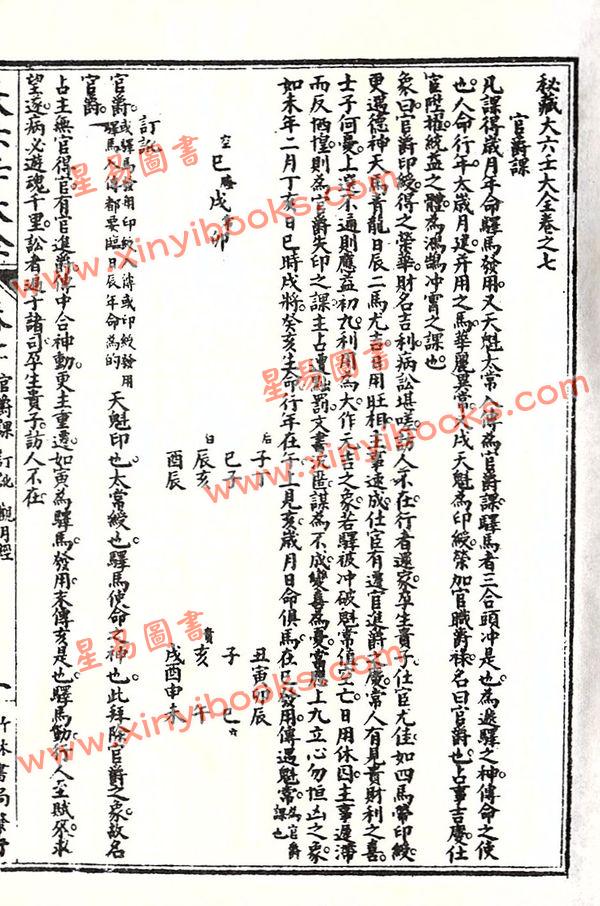 秘藏大六壬大全卷之七
官爵課
凡課得歲月年命驛馬發用又天魁太常入傳為官爵課驛馬者三合頭冲是也為遞驛之神傳命之使
也人命行年太歲月建并用之馬華麗異常入戌天魁為印綬榮加官職爵祿名曰官爵也占事吉慶仕
宦陞擢統益之體為鴻鵠冲霄之課也
象曰官爵印綬得之榮華財名吉利病訟堪嗟訪人不在行者還家孕生貴子仕宦尤佳如四馬帶印綬
更遇德神天馬青龍日辰二馬尤吉日用旺相主事速成仕宦有遷官進爵之慶常人有見貴財利之喜
士子何憂上達不通則應益初九利用為大作元吉之象若驛被冲破魁常值空亡日用休囚主事遲滯
而反恓惶則為官爵失印之課主占遭黜罰文書災匿謀為不成變喜為憂當應上九立心勿恒凶之象
如未年二月丁亥日巳時戌將癸亥生命行年在午上見亥歲月日命俱馬在巳發用傳遇魁常為官爵課也
丑寅卯辰
子 巳
貴亥 午
戌酉申未
后子丁
巳子
白辰亥
酉辰
空巳 戌 卯
訂訛
官爵 或驛馬發用印綬入傳或印綬發用驛馬入傳都要臨日辰年命為的 天魁印也太常綬也驛馬使命之神也此拜除官爵之象故名
官爵
占主無官得官有官進爵傳中合神動更主重遷如寅為驛馬發用末傳亥是也驛馬動行人至賦來求
望逐病必遊魂千里訟者遍于諸司孕生貴子訪人不在
官爵課 訂訛 觀月經
一
竹林書局
星易圖書
www.xinyibooks.com
星易圖書
www.xinyibooks.com
星易圖書
www.xinyibooks.com
星易圖書
www.xinyibooks.com